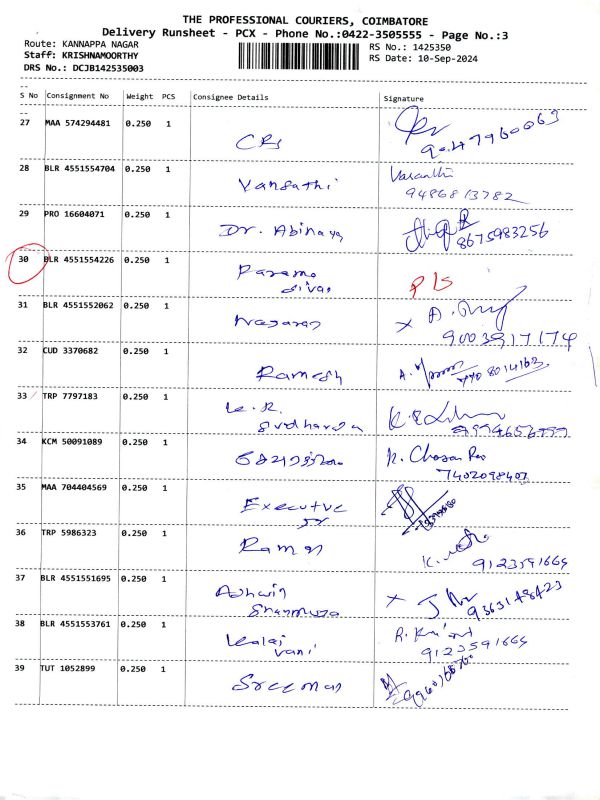 THE PROFESSIONAL COURIERS, COIMBATORE
Delivery Runsheet - PCX - Phone No.:0422-3505555 - Page No.:3
Route: KANNAPPA NAGAR
Staff: KRISHNAMOORTHY
DRS No.: DCJB142535003
RS No.: 1425350
RS Date: 10-Sep-2024
S No Consignment No Weight PCS Consignee Details Signature
27 MAA 574294481 0.250 1
9047960063
28 BLR 4551554704 0.250 1 Vansathi Vasanthi
9486813782
29 PRO 16604071 0.250 1 Dr. Abinaya
8675983256
30 BLR 4551554226 0.250 1 Parama
sivan
31 BLR 4551552062 0.250 1 Nagaraj
9003917174
32 CUD 3370682 0.250 1 Ramesh
33 TRP 7797183 0.250 1 K.R.
Sridharan
34 KCM 50091089 0.250 1
7402098407
35 MAA 704404569 0.250 1 Executve
36 TRP 5986323 0.250 1 Raman
9123591664
37 BLR 4551551695 0.250 1 Ashwin
Shanmuga
9363148423
38 BLR 4551553761 0.250 1 Kalai
vani
9123591664
39 TUT 1052899 0.250 1 Sreeman